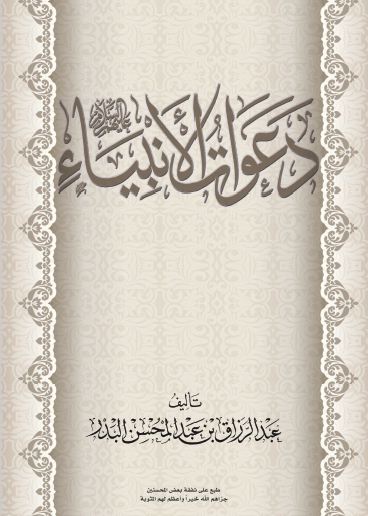 دَعَوَاتُ الأَنْبِيَاءِ عليهم السلام
تأليف
عبد الرزاق بن عبد المحسن البدر
طبع على نفقة بعض المحسنين
جزاهم الله خيراً وأعظم لهم المثوبة